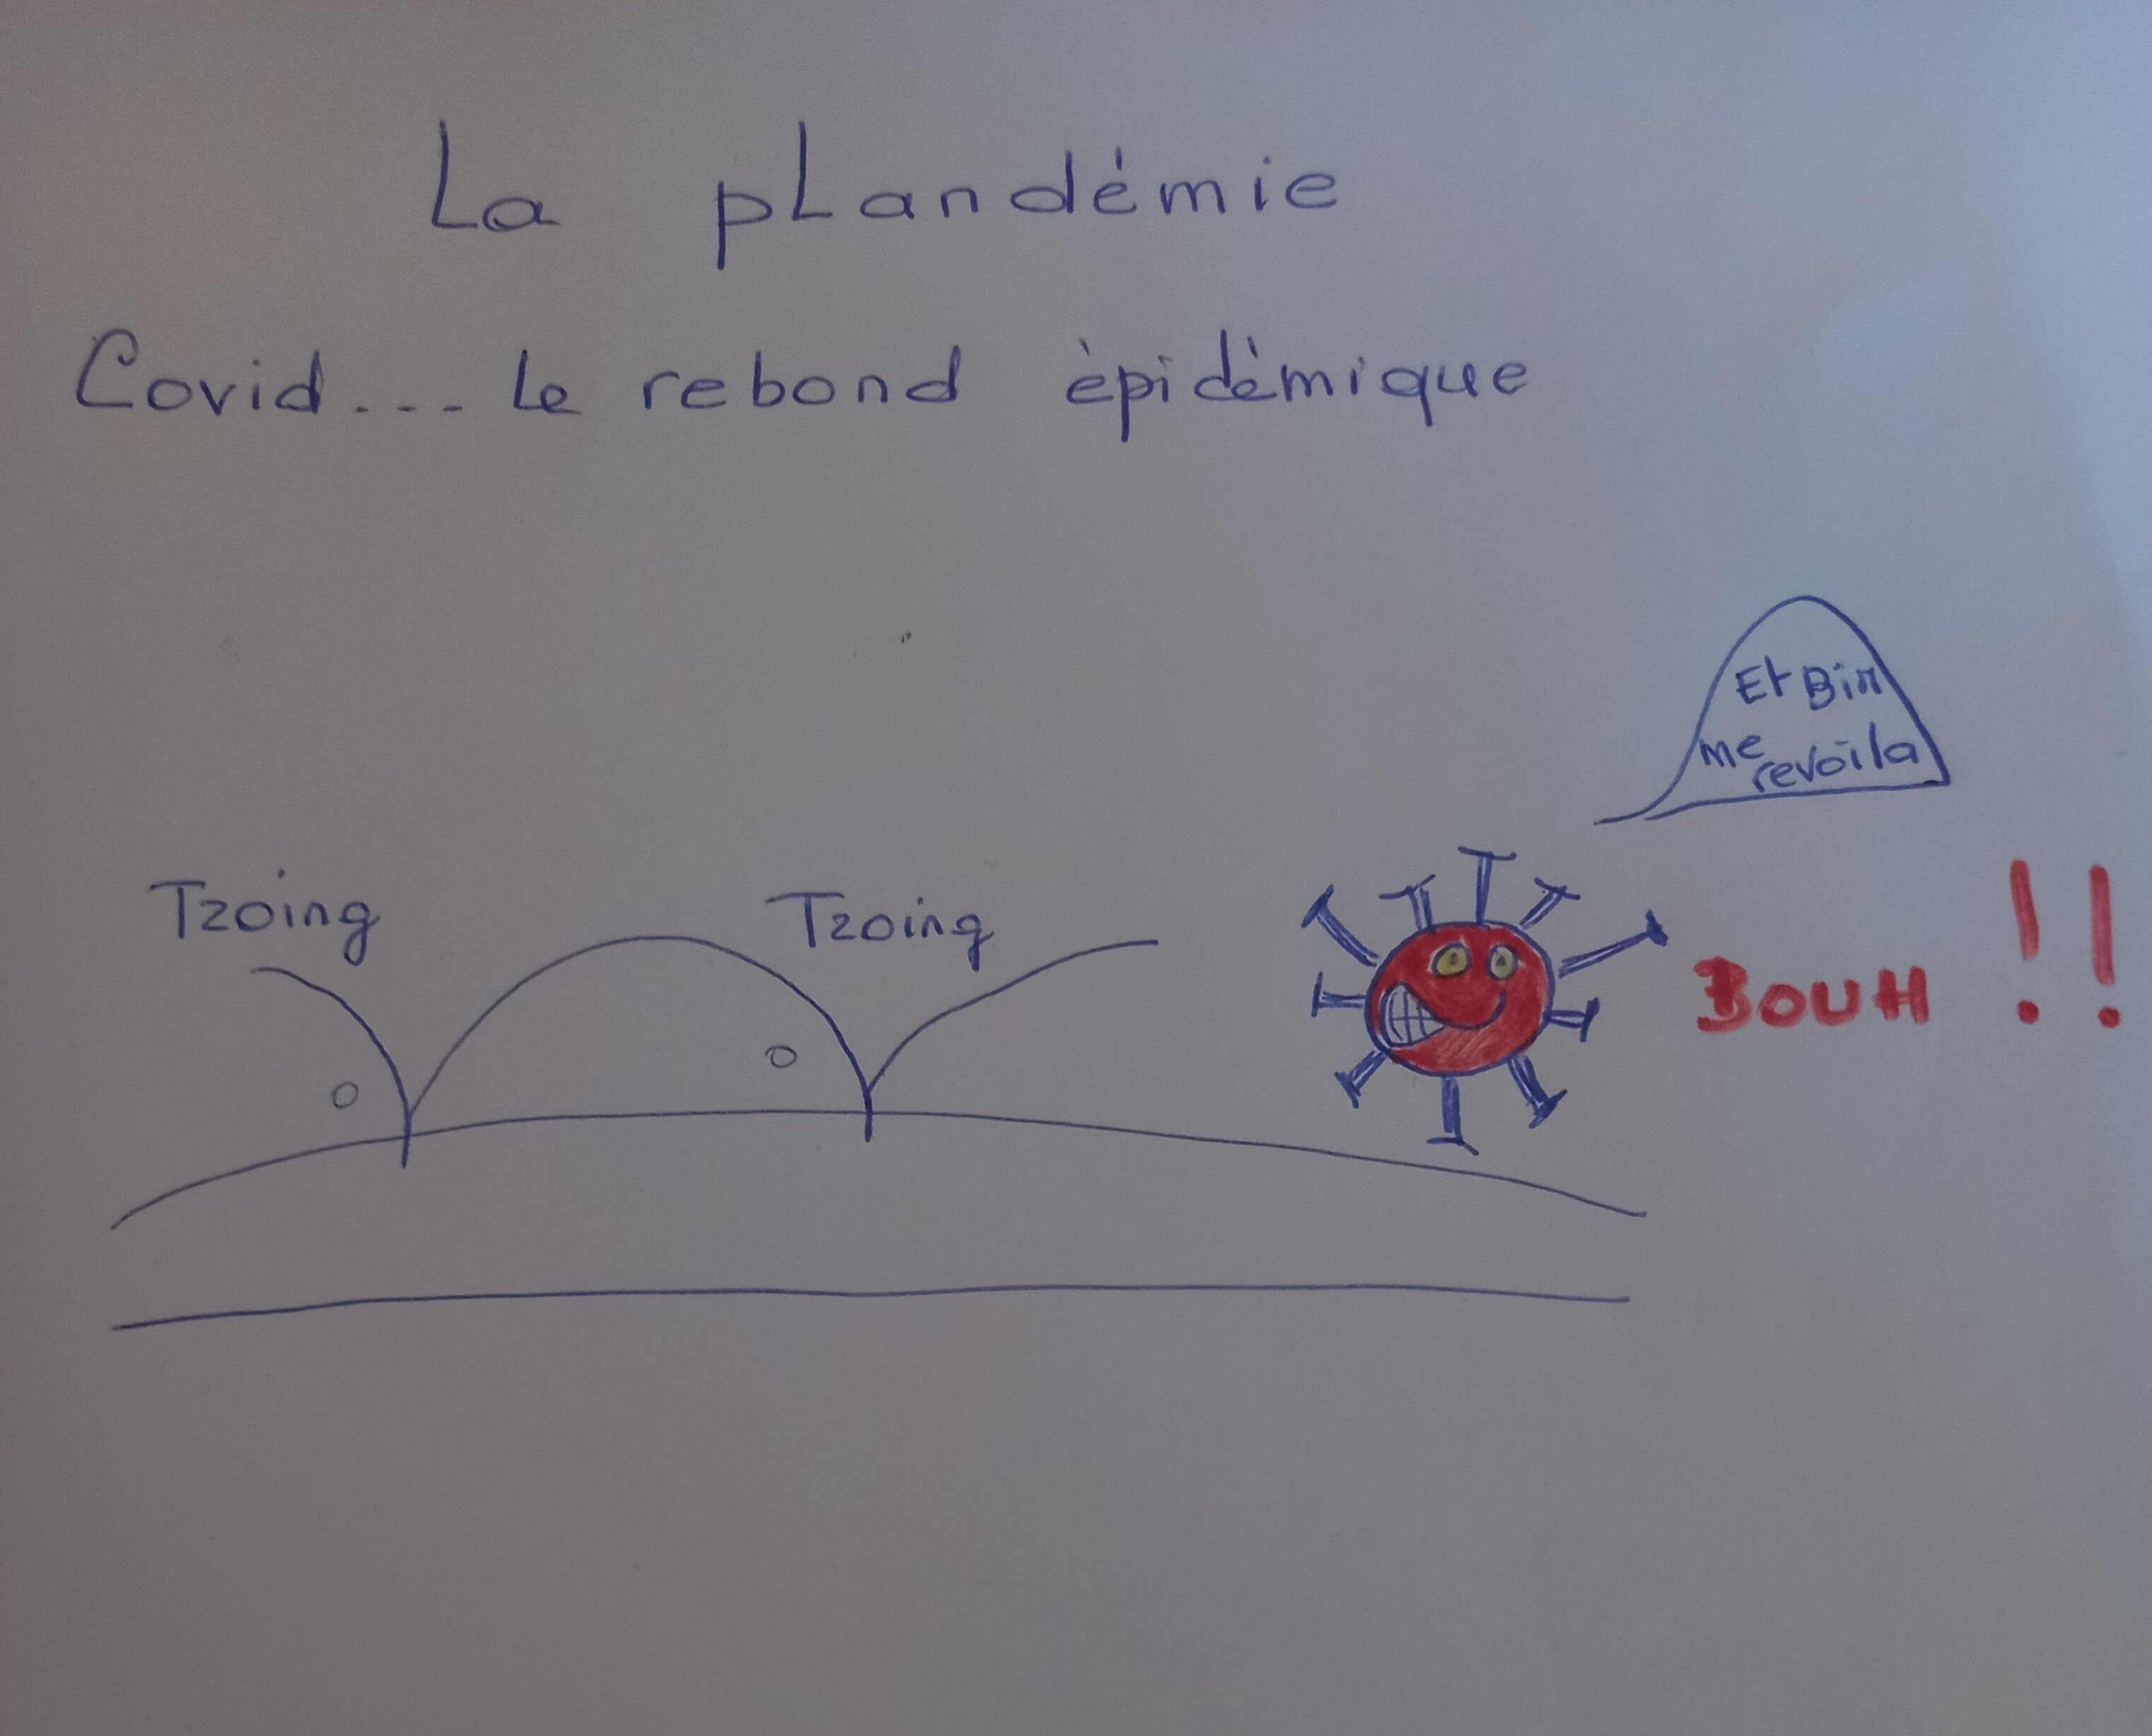 La pLandémie
Covid... Le rebond èpidèmique
Et Bin
me revoila
Tzoing
Tzoing
BOUH !!